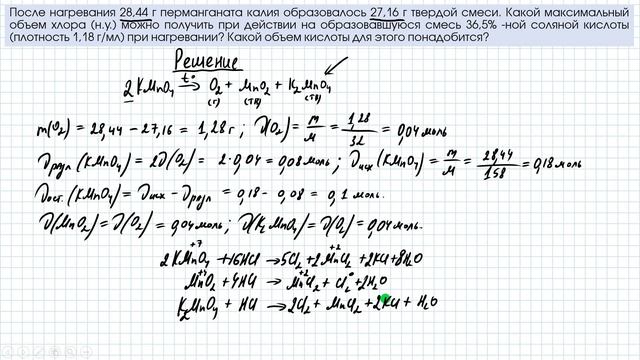 После нагревания 28,44 г перманганата калия образовалось 27,16 г твердой смеси. Какой максимальный
объем хлора (н.у.) можно получить при действии на образовавшуюся смесь 36,5% -ной соляной кислоты
(плотность 1,18 г/мл) при нагревании? Какой объем кислоты для этого понадобится?
Решение
2KMnO₄ →t° O₂ + MnO₂ + K₂MnO₄
(г) (тв) (тв)
m(O₂) = 28,44 - 27,16 = 1,28 г; ν(O₂) = m/M = 1,28/32 = 0,04 моль
νразл(KMnO₄) = 2ν(O₂) = 2·0,04 = 0,08 моль; νисх(KMnO₄) = m/M = 28,44/158 = 0,18 моль
νост.(KMnO₄) = νисх - νразл = 0,18 - 0,08 = 0,1 моль.
ν(MnO₂) = ν(O₂) = 0,04 моль; ν(K₂MnO₄) = ν(O₂) = 0,04 моль.
+7 +2
2KMnO₄ + 16HCl → 5Cl₂ + 2MnCl₂ + 2KCl + 8H₂O
+4 +2 0
MnO₂ + 4HCl → MnCl₂ + Cl₂ + 2H₂O
K₂MnO₄ + HCl → 2Cl₂ + MnCl₂ + 2KCl + H₂O